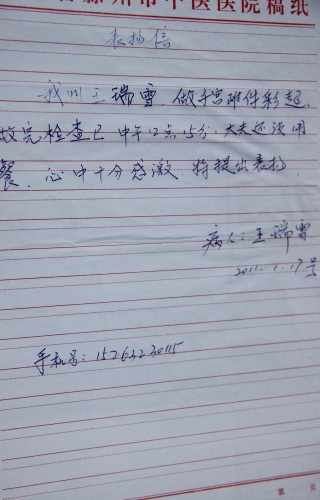 滕州市中医医院稿纸
表扬信
我叫王瑞雪，做子宫附件彩超，
做完检查已中午12点15分，大夫还没用
餐，心中十分感激，特提出表扬
病人：王瑞雪
2011.1.17号
手机号：15263230115
第 页